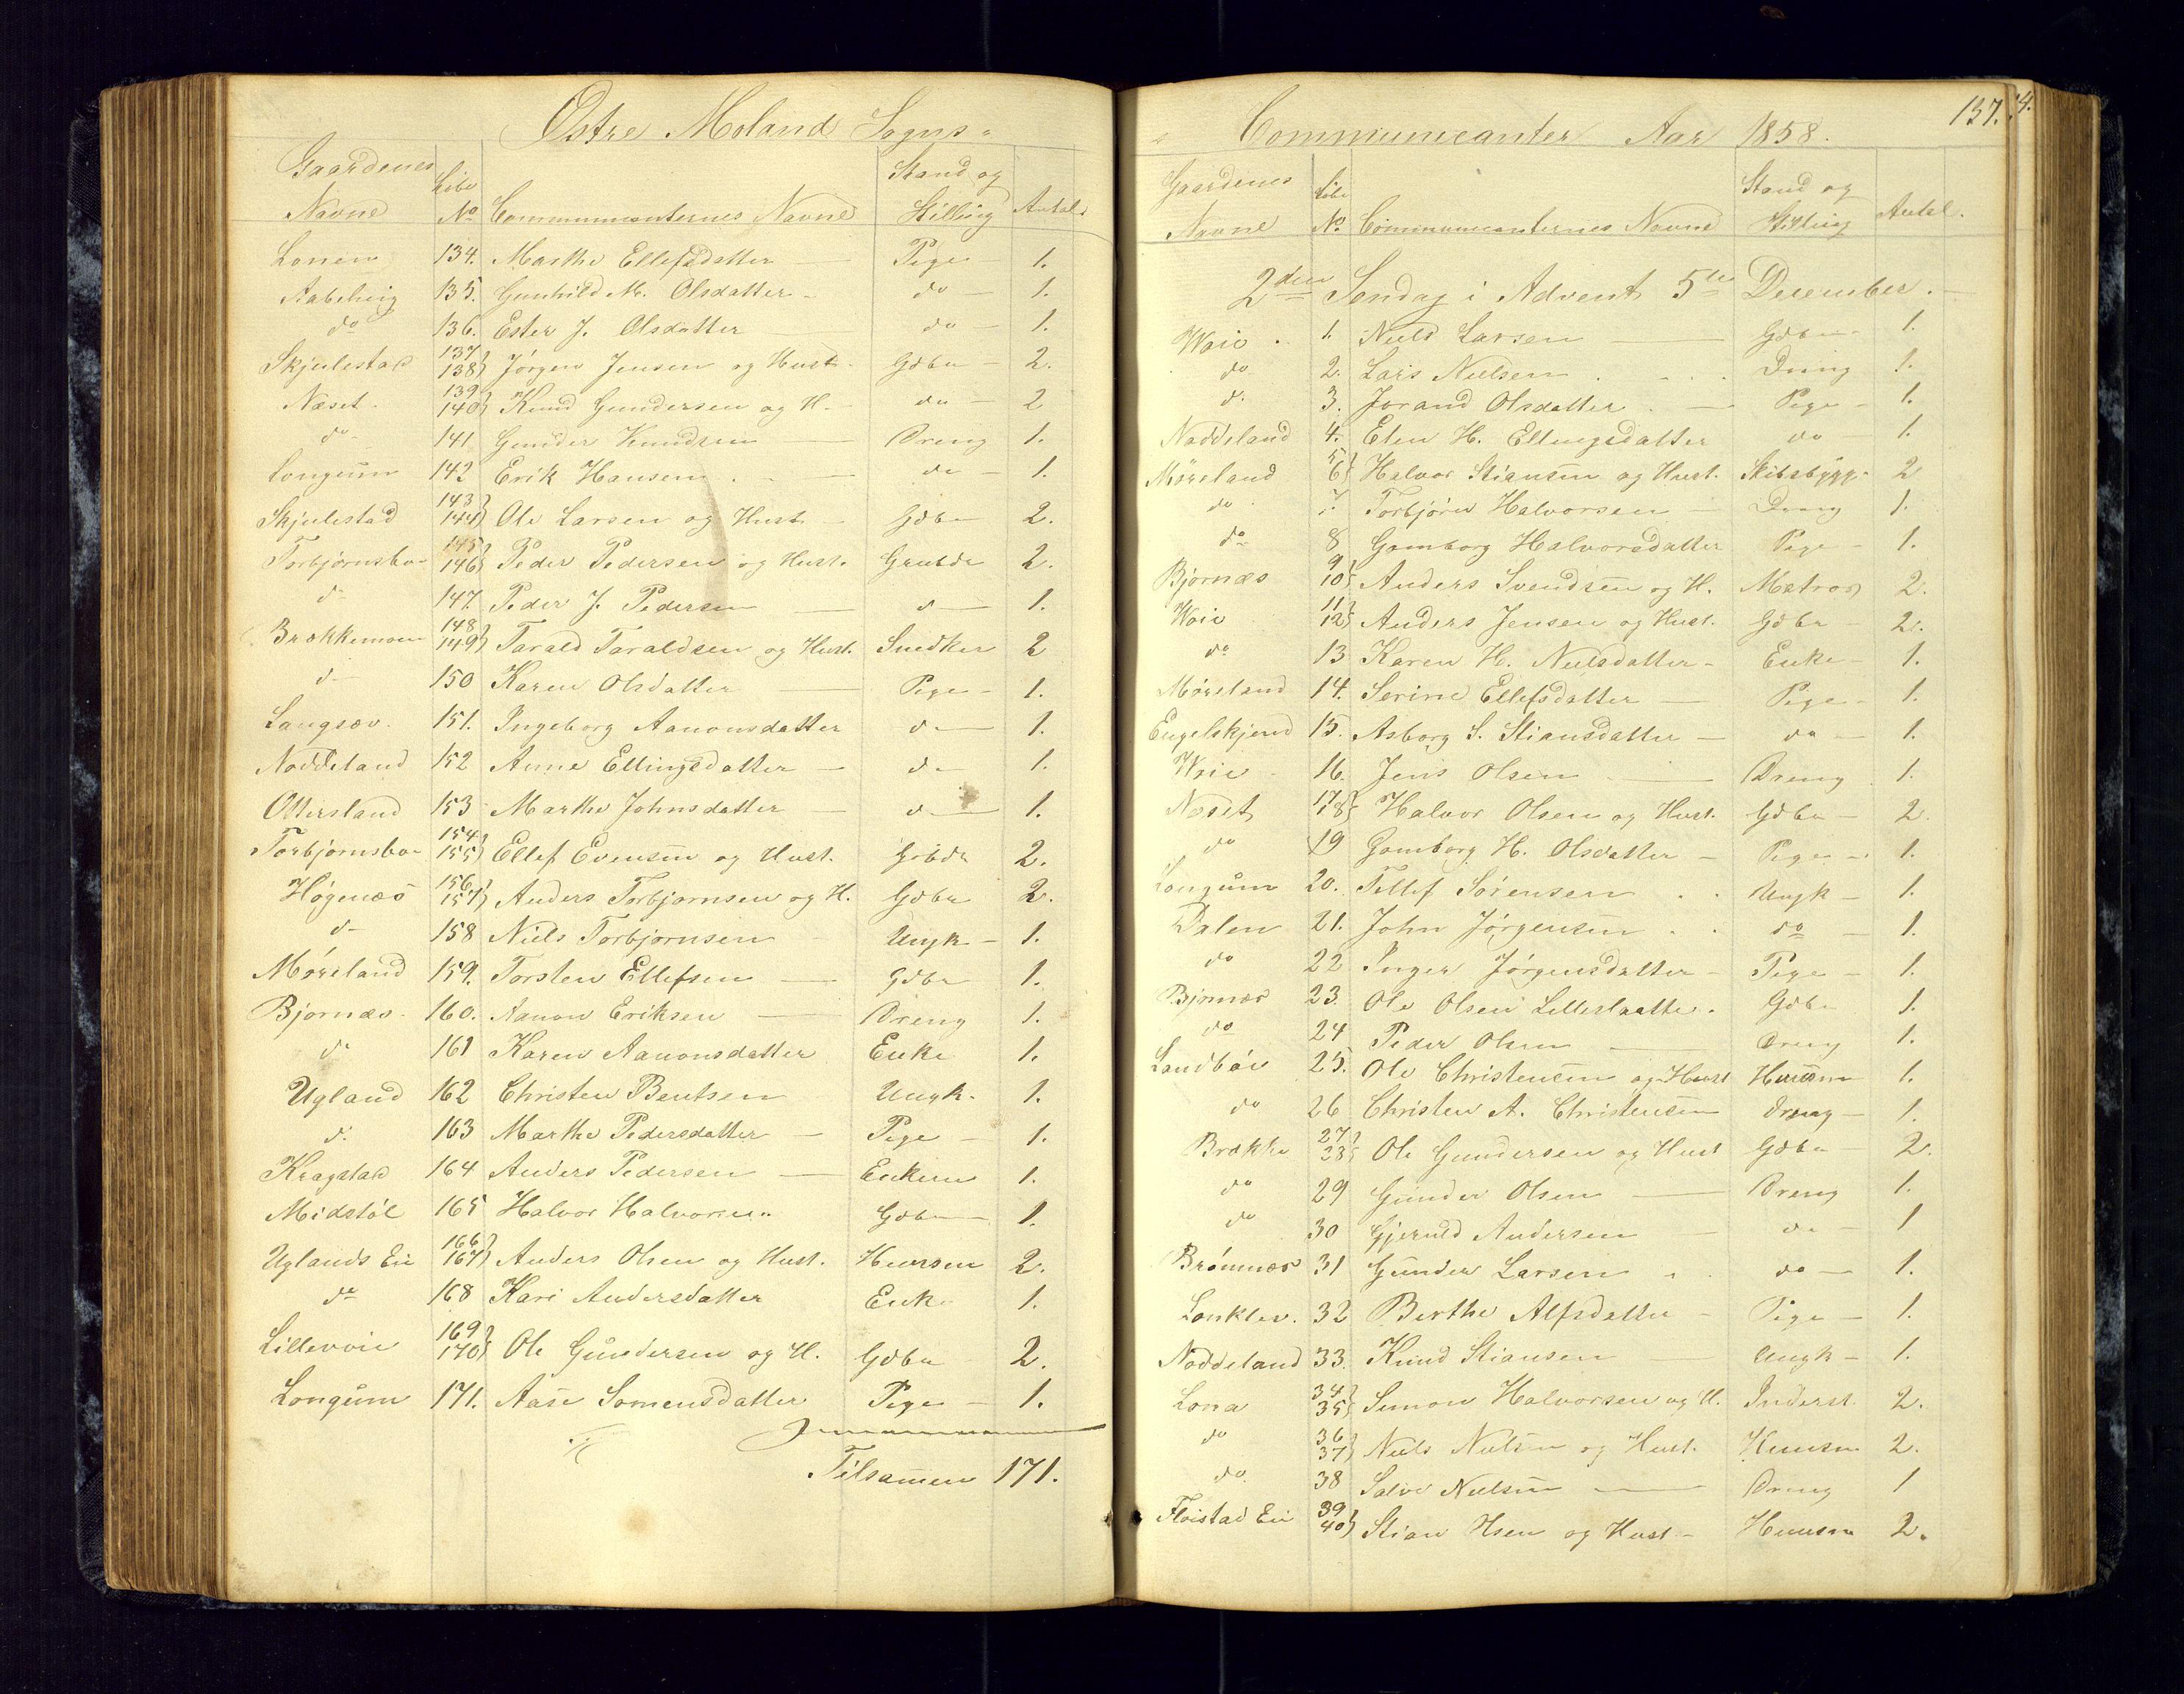 Østre Moland Sogns
Gaardenes Navne Løbe No Communicanternes Navne Stand og Stilling Antal
Lonen 134. Marthe Ellefsdatter Pige 1.
135. Gunhild M. Olsdatter do 1.
do 136. Ester J. Olsdatter do 1.
Skjulestad 137 138 Jørgen Jensen og Hust. Gdbr 2.
Næset 139 140 Knud Gundersen og H. do 2
do 141. Gunder Knudsen Dreng 1.
Longum 142 Erik Hansen do 1.
Skjulestad 143 144 Ole Larsen og Hust Gdbr 2.
Torbjørnsbo 145 146 Peder Pedersen og Hust. Grubdr 2.
do 147. Peder J. Pedersen do 1.
Brækkemoen 148 149 Tarald Taraldsen og Hust. Snedker 2
do 150 Karen Olsdatter Pige 1.
Langsæv 151. Ingeborg Aanonsdatter do 1.
Noddeland 152 Anne Ellingsdatter do 1.
Ottersland 153 Marthe Johnsdatter do 1.
Torbjørnsbo 154 155 Ellef Evensen og Hust. Grbdr 2.
Høgenæs 156 157 Anders Torbjørnsen og H. Gdbr 2.
do 158 Niels Torbjørnsen Ungk 1.
Møreland 159. Torsten Ellefsen Gdbr 1.
Bjørnæs 160. Aanon Eriksen Dreng 1.
do 161 Karen Aanonsdatter Enke 1.
Ugland 162 Christen Bentsen Ungk. 1.
do 163 Marthe Pedersdatter Pige 1.
Kragstad 164 Anders Pedersen Enkem 1.
Midstøl 165 Halvor Halvorsen Gdbr 1.
Uglands Eie 166 167 Anders Olsen og Hust. Huusm 2.
do 168 Kari Andersdatter Enke 1.
Lillevoie 169 170 Ole Gundersen og H. Gdbr 2.
Longum 171. Aase Somensdatter Pige 1.
Tilsammen 171.
Communicanter Aar 1858. 137. 4.
Gaardenes Navne Løbe No Communicanternes Navne Stand og Stilling Antal.
2den Søndag i Advent 5te December.
Woie 1. Niels Larsen Gdbr 1.
do 2. Lars Nielsen Dreng 1.
do 3. Jorand Olsdatter Pige 1.
Noddeland 4. Elen H. Ellingsdatter do 1.
Møreland 5 6 Halvor Stiansen og Hust. Skibsbygg. 2
do 7. Torbjørn Halvorsen Dreng 1.
do 8 Gomborg Halvorsdatter Pige 1.
Bjørnæs 9 10 Anders Svendsen og H. Matros 2.
Woie 11 12 Anders Jensen og Hust. Gdbr 2.
do 13 Karen H. Nielsdatter Enke 1.
Møreland 14. Serine Ellefsdatter Pige 1.
Engelskjend 15. Asborg S. Stiansdatter do 1.
Woie 16. Jens Olsen Dreng 1.
Næset 17 18 Halvor Olsen og Hust. Gdbr 2.
do 19 Gomborg H. Olsdatter Pige 1.
Longum 20. Tellef Sørensen Ungk 1.
Dalen 21. John Jørgensen do 1.
do 22 Inger Jørgensdatter Pige 1.
Bjørnæs 23. Ole Olsen Lilleslaatte. Gdbr 1.
do 24 Peder Olsen Dreng 1.
Landbøe 25. Ole Christensen og Hust Huusm 1.
do 26 Christen A. Christensen Dreng 1.
Brække 27 28 Ole Gundersen og Hust Gdbr 2.
do 29 Gunder Olsen Dreng 1.
do 30 Gjeruld Andersen do 1
Brømnæs 31 Gunder Larsen do 1.
Lonklev. 32 Berthe Alfsdatter Pige 1.
Noddeland 33. Knud Stiansen Ungk 1.
Lona 34 35 Simon Halvorsen og H. Inderst 2.
do 36 37 Niels Nielsen og Hust. Huusm 2.
do 38 Salve Nielsen Dreng 1
Fløistad Eie 39 40 Stian og Hust Huusm 2.